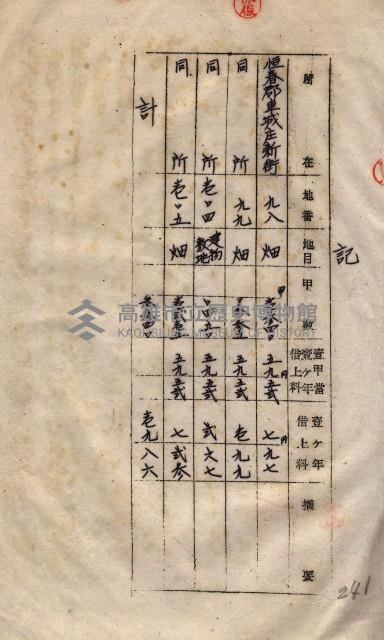 記
所在 地番 地目 甲數 壹甲當壹ヶ年借上料 壹ヶ年借上料 摘要
恒春郡車城庄新街 九八 畑 五九五弍 七九七
同所 九九 畑 五九五弍 壱九九
同所 壱〇四 建物敷地 〇四五 五九五弍 弍六七
同所 壱〇五 畑 五九五弍 七弍参
計 壱九八六
高雄市立歷史博物館
KAOHSIUNG MUSEUM OF HISTORY
241